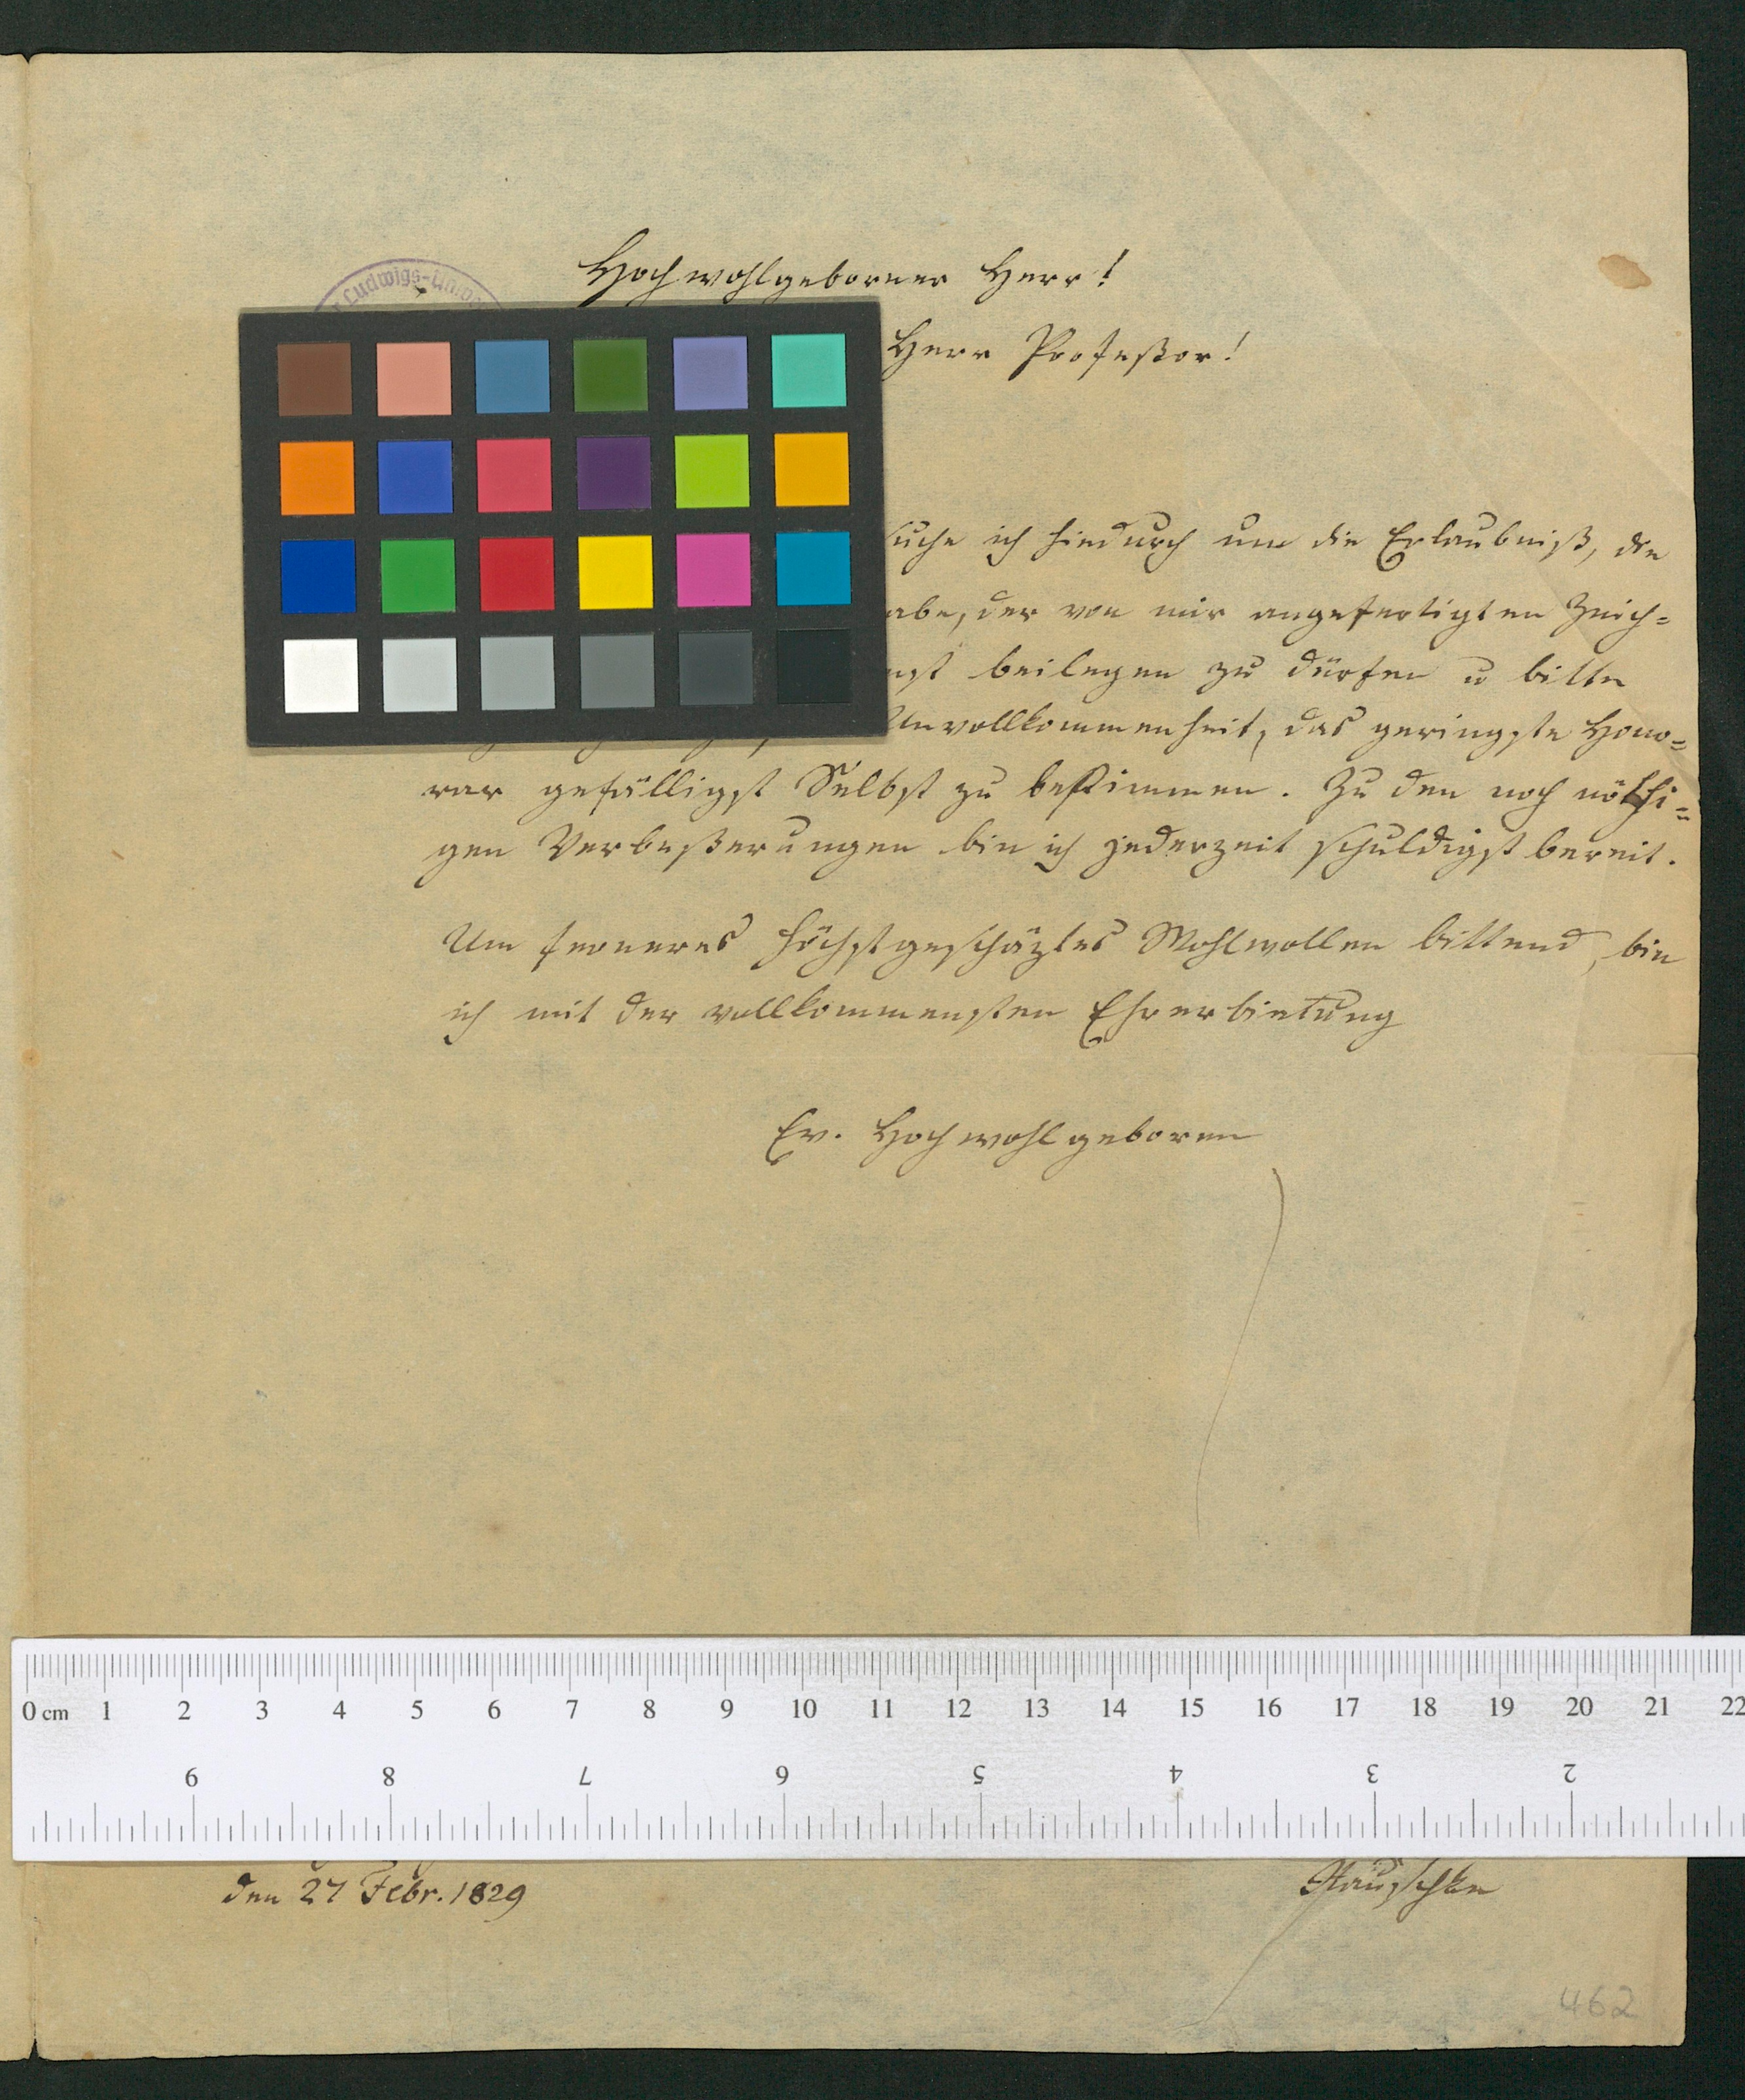 Ludwigs-Un
Hochwohlgeborner Herr!
Herr Profeßor!
suche ich hiedurch um die Erlaubniß, die
abe, der von mir angefertigten Zeich=
beilegen zu dürfen u bitte
Unvollkommenheit, das geringste Hono=
rar gefälligst Selbst zu bestimmen. Zu den noch nöthi=
gen Verbeßerungen bin ich jederzeit schuldigst bereit.
Um ferneres höchstgeschäztes Wohlwollen bittend, bin
ich mit der vollkommensten Ehrerbietung
Ew. Hochwohlgeboren
0 cm 1 2 3 4 5 6 7 8 9 10 11 12 13 14 15 16 17 18 19 20 21 22
9 8 7 6 5 4 3 2
den 27 Febr. 1829
462